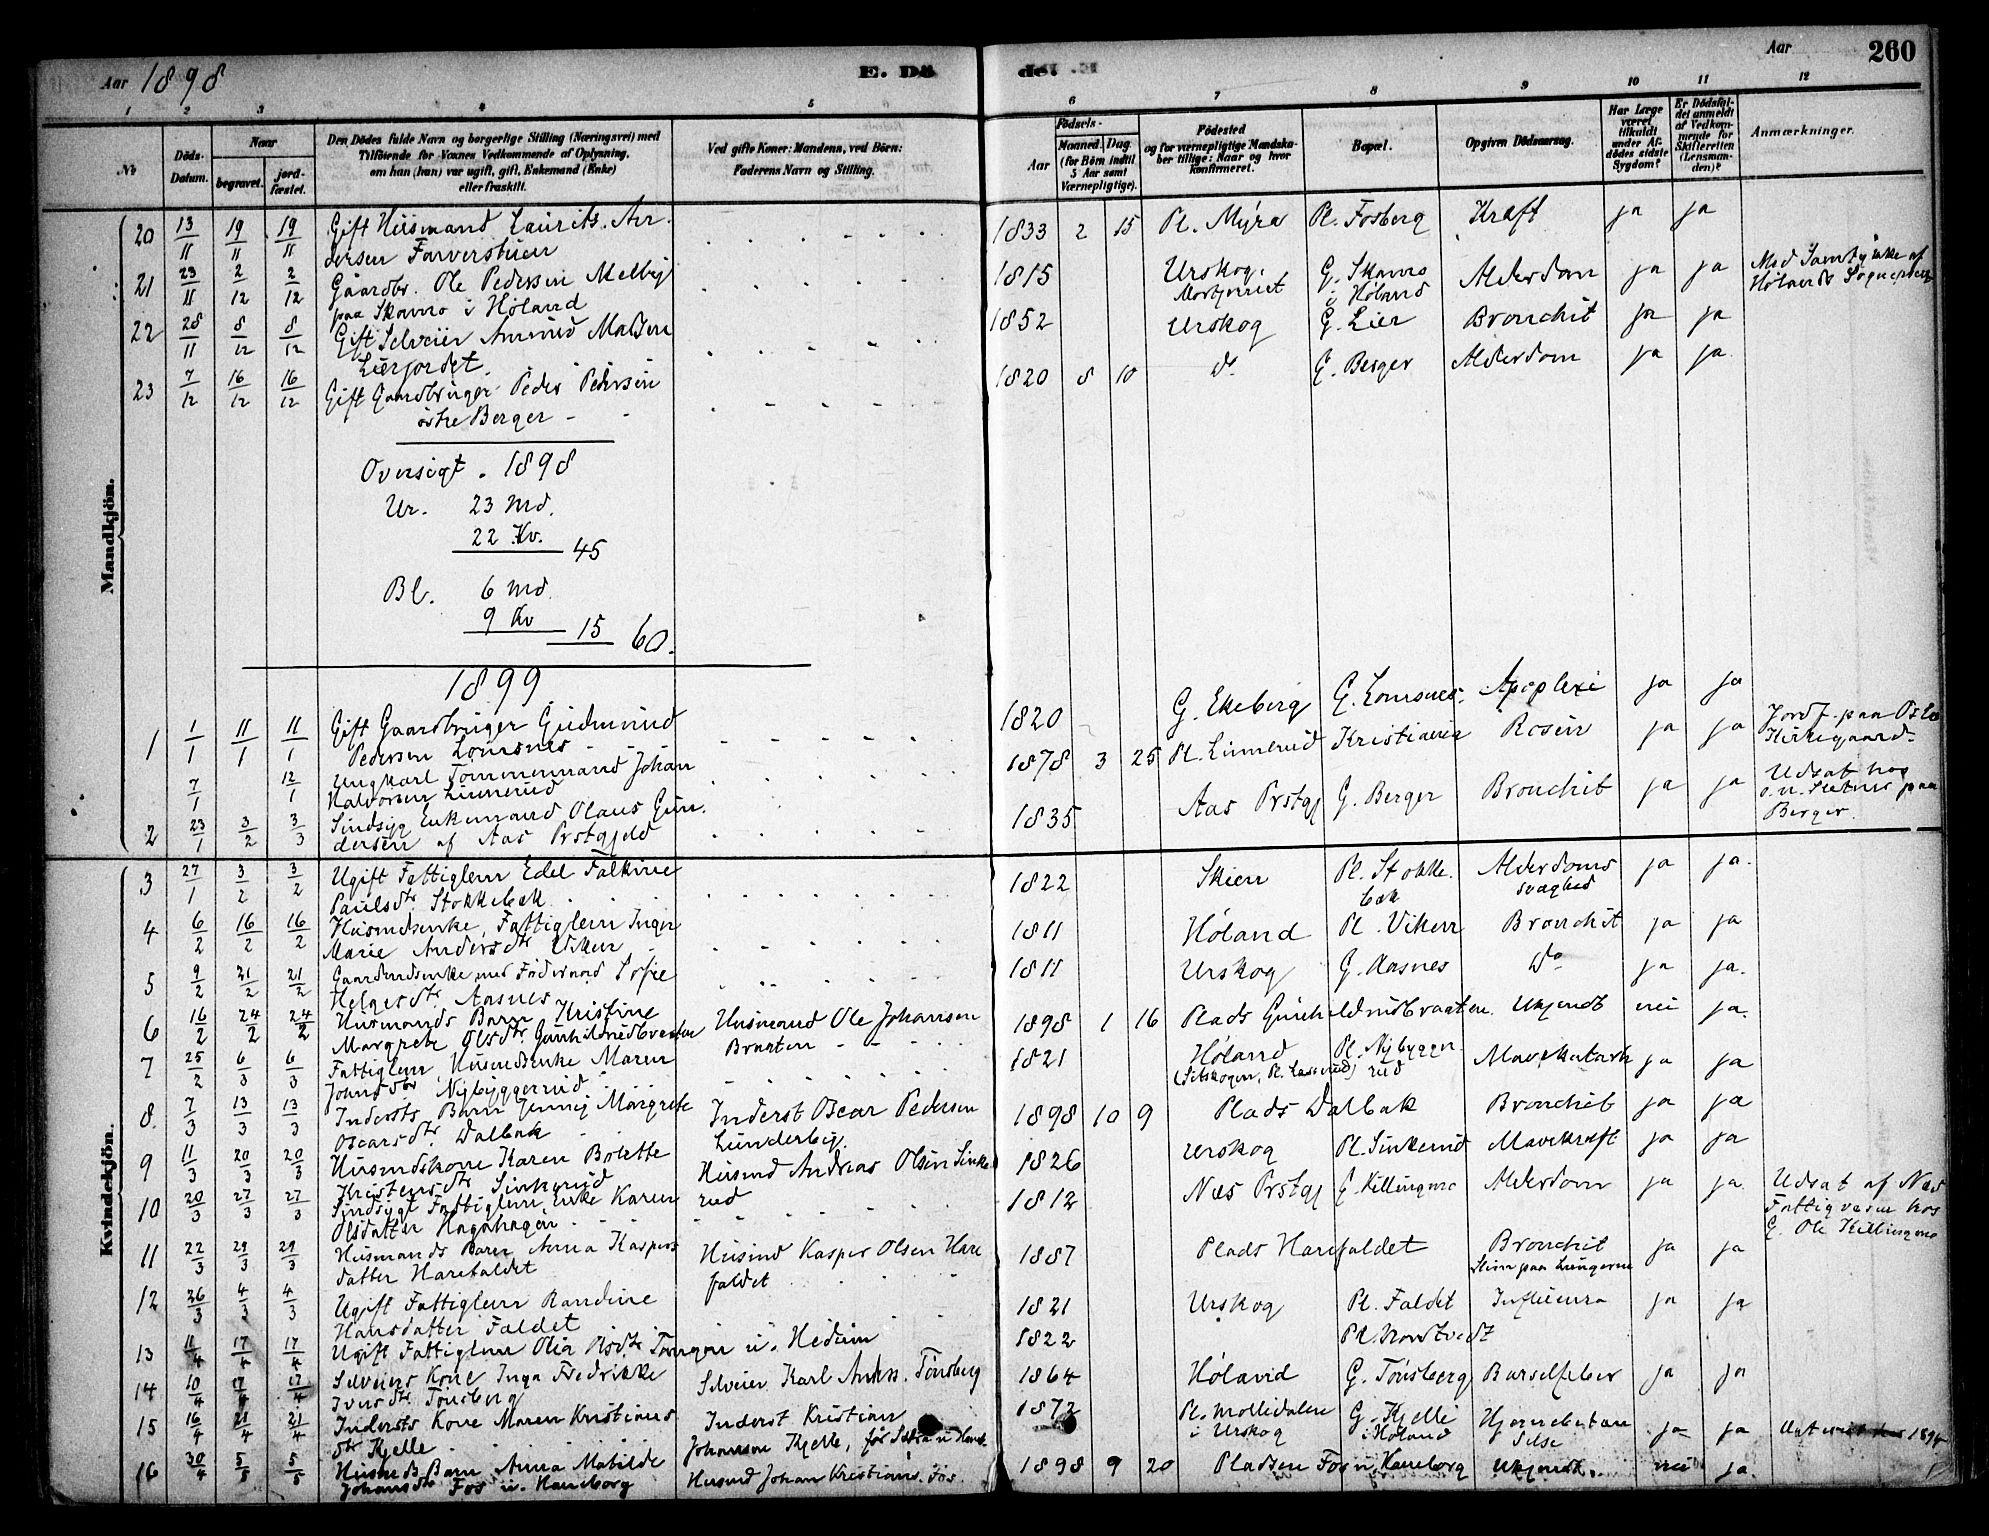 Aar 1898
E. Dö
de.
Aar
260
1 2 3 4 5 6 7 8 9 10 11 12
No
Döds-Datum.
Naar
begravet.
jord-fæstet.
Den Dödes fulde Navn og borgerlige Stilling (Næringsvei) med
Tilföiende for Voxnes Vedkommende af Oplysning,
om han (hun) var ugift, gift, Enkemand (Enke)
eller fraskilt.
Ved gifte Koner: Mandens, ved Börn:
Faderens Navn og Stilling.
Födsels-
Aar
Maaned. Dag.
(for Börn indtil
5 Aar samt
Værnepligtige).
Födested
og for værnepligtige Mandska-
ber tillige: Naar og hvor
konfirmeret.
Bopæl.
Opgiven Dödsaarsag.
Har Læge
været
tilkaldt
under Af-
dödes sidste
Sygdom?
Er Dödsfal-
det anmeldt
af Vedkom-
mende for
Skifteretten
(Lensman-
den)?
Anmærkninger.
Mandkjön.
20 13/11 19/11 19/11 Gift Husmand Laurits An- 1833 2 15 Pl. Myra Pl. Fosberg Kræft ja ja
dersen Farverstuen
21 23/11 2/12 2/12 Gaardbr. Ole Pedersen Melby 1815 Urskog. G. Skamro Alderdom ja ja Med Samtykke af
paa Skamro i Höland i Höland Hölands Sognepræst
22 28/11 8/12 8/12 Gift Selveier Amund Madsen 1852 Urskog G. Lier Bronchit ja ja
Lierjordet.
23 7/12 16/12 16/12 Gift Gaardbruger Peder Pedersen 1820 8 10 do G. Berger Alderdom ja ja
östre Berger
Oversigt. 1898
Ur. 23 Md.
22 Kv. 45
Bl. 6 Md.
9 Kv 15 60.
1899
1 1/1 11/1 11/1 Gift Gaardbruger Gudmund 1820 G. Ekeberg G. Lomsnes. Apoplexi ja ja
Pedersen Lomsnes
7/1 12/1 Ungkarl Tømmermand Johan 1878 3 25 Pl. Linnerud Kristiania Rosen ja ja Jordf. paa Oslo
Halvorsen Linnerud Kirkegaard.
2 23/1 3/2 3/3 Sindsyg Enkemand Olaus Gun- 1835 Aas Prstgj G. Berger Bronchit ja ja Udsat hos
dersen af Aas Prstgjeld paa
Berger.
Kvindekjön.
3 27/1 3/2 3/2 Ugift Fattiglem Edel Falkine 1822 Skien Pl. Stokke- Alderdoms ja ja.
Paulsdtr Stokkebæk bæk svaghed
4 6/2 16/2 16/2 Husmdsenke, Fattiglem Inger 1811 Höland Pl. Viken Bronchit ja ja
Marie Andersdtr Viken
5 9/2 21/2 21/2 Gaardmdsenke med Föderaad Sofie 1811 Urskog G. Aasnes Do ja ja.
Helgesdtr Aasnes
6 16/2 24/2 24/2 Husmands Barn Kristine Husmand Ole Johansen 1898 1 16 Plads Gunhildrudbraaten. Ukjendt nei ja.
Margrete Olsdtr Gunhildrudbraaten Braaten
7 25/2 6/3 6/3 Fattiglem, Husmdsenke Maren 1821 Höland Pl. Nybygger- Mavekatarh ja ja
Johnsdtr Nybyggerrud rud
8. 7/3 13/3 13/3 Indersts Barn Jenny Margrete Inderst Oscar Pedersen 1898 10 9 Plads Dalbak Bronchit ja ja
Oscarsdtr Dalbak Lunderby.
9 11/3 20/3 20/3 Husmdskone Karen Bolette Husmd Andreas Olsen Sinke- 1826 Urskog Pl. Sinkerud Mavekræft ja ja
Kristensdtr Sinkerud rud
10 20/3 27/3 27/3 Sindsygt Fattiglem, Enke Karen 1812 Næs Prstgj G. Killingmo Alderdom ja ja Udsat af Næs
Olsdatter Hagahagen Fattigvæsen hos
G. Ole Killingmo
11 22/3 29/3 29/3 Husmands Barn Anna Kaspers- Husmd Kasper Olsen Hare- 1887 Plads Harefaldet Bronchit ja ja
datter Harefaldet faldet Slim paa Lungerne
12 26/3 4/3 4/3 Ugift Fattiglem Randine 1821 Urskog Pl. Faldet Influenza ja ja
Hansdatter Faldet
13 11/4 17/4 17/4 Ugift Fattiglem Olia u. Hedum 1822 Pl. Nordtvedt
14 10/4 17/4 17/4 Selveiers Kone Inga Fredrikke Selveier Karl Anders. Tönsberg 1864 Höland G. Tönsberg Barselfeber ja ja
Iversdtr Tönsberg
15 16/4 21/4 21/4 Indersts Kone Maren Kristians- Inderst Kristian 1872 Pl. Mollidalen G. Kjelle Hjernebetæn- ja ja
dtr Kjelle Johansen Kjelle, i Urskog i Höland else
16 30/4 5/5 5/5 Husmds Barn Anna Matilde Husmd Johan Kristians. Fos 1898 9 20 Pladsen Fos u. Haneborg Ukjendt. nei ja.
Johansdtr Fos u. Haneborg